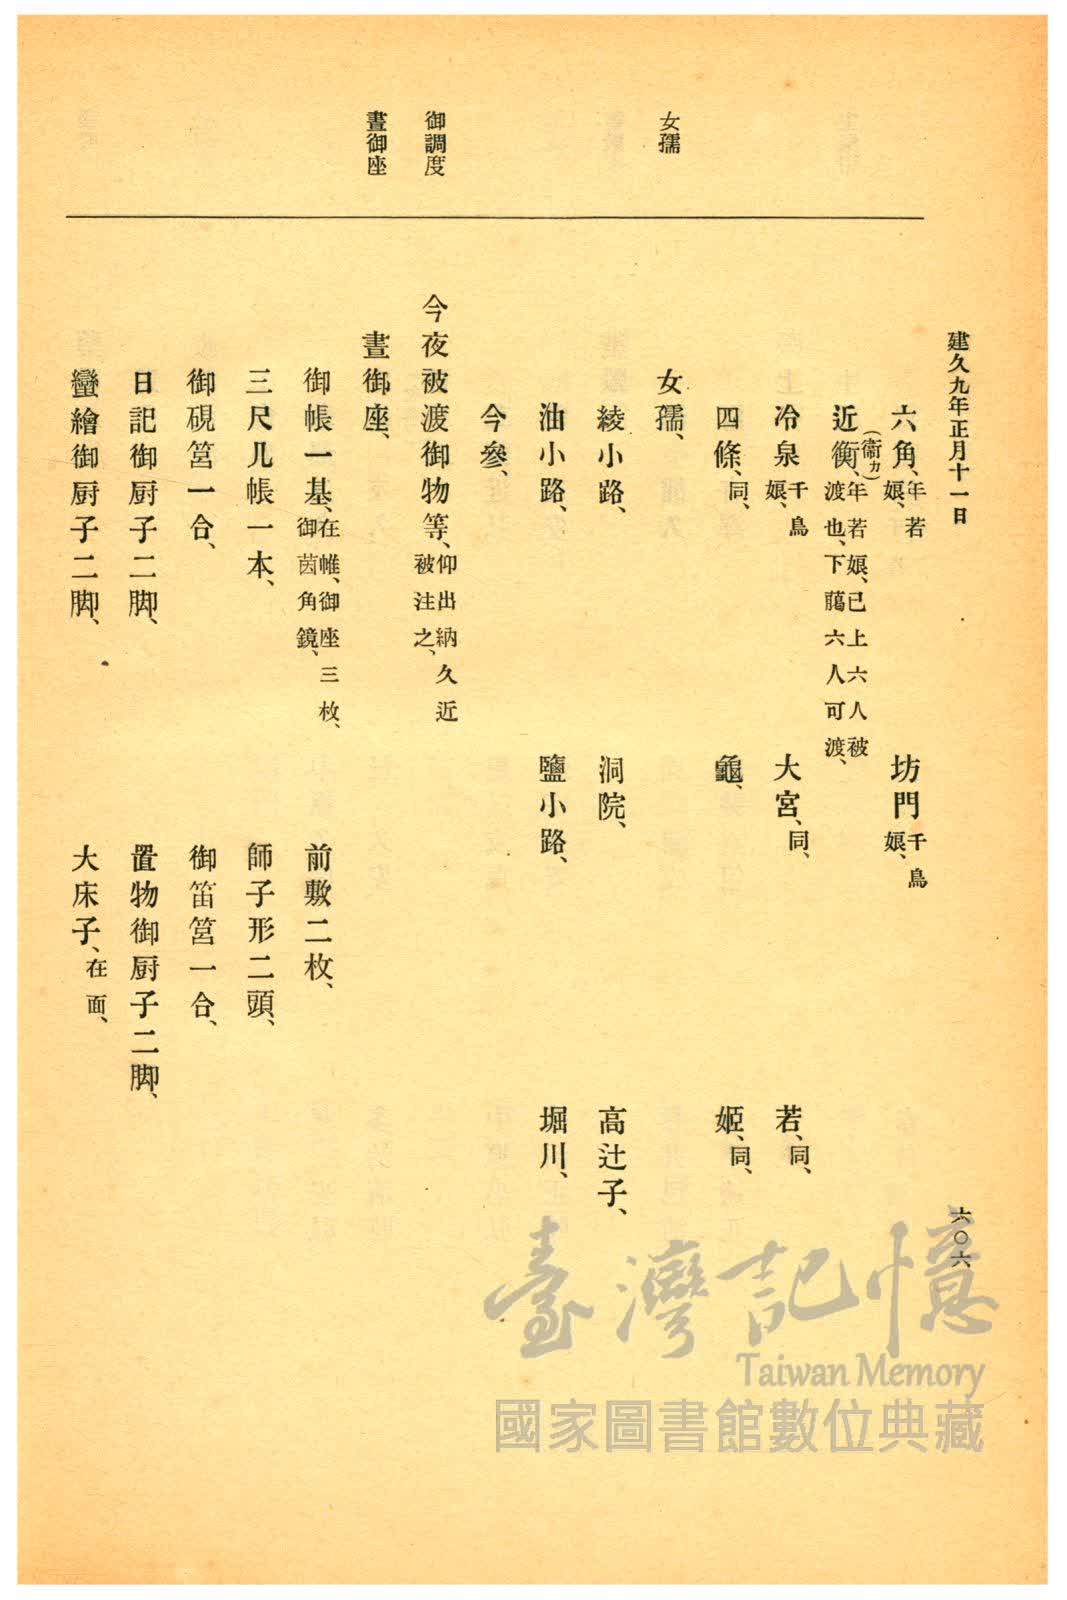 建久九年正月十一日
六〇六
女孺
御調度
晝御座
六角、年若娘、
坊門千鳥娘、
近衡、(衞カ)年若娘、已上六人被渡也、下﨟六人可渡、
冷泉千鳥娘、
大宮、同、
若、同、
四條、同、
龜、
姬、同、
女孺、
綾小路、
洞院、
高辻子、
油小路、
鹽小路、
堀川、
今參、
今夜被渡御物等、仰出納久近被注之、
晝御座、
御帳一基、在帷、御座三枚、御茵角鏡、
前敷二枚、
三尺几帳一本、
師子形二頭、
御硯筥一合、
御笛筥一合、
日記御厨子二脚、
置物御厨子二脚、
蠻繪御厨子二脚、
大床子、在面、
臺灣記憶
Taiwan Memory
國家圖書館數位典藏